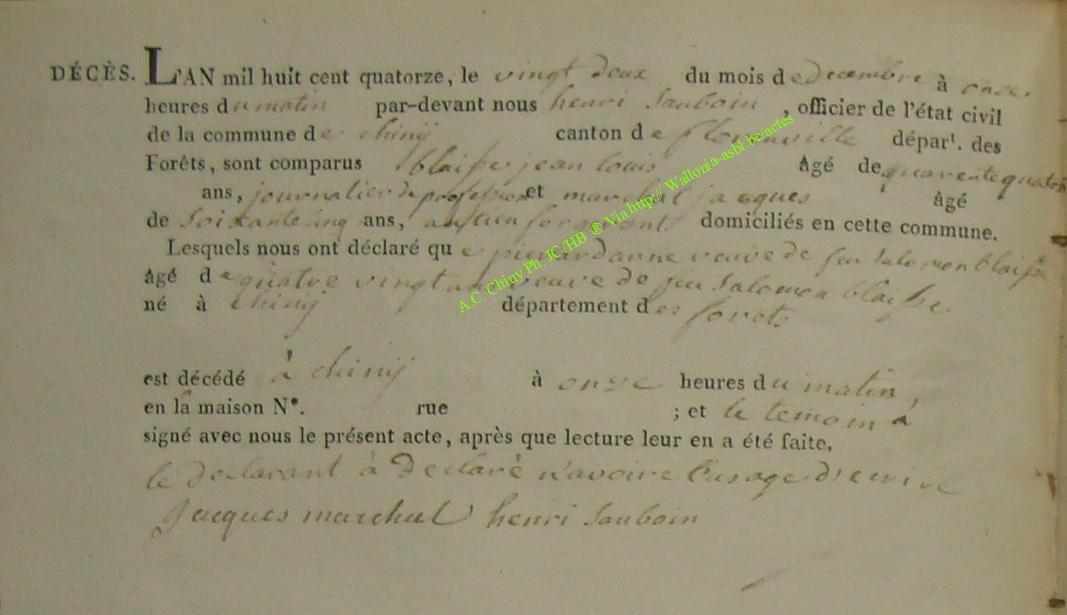 DÉCÈS. L'AN mil huit cent quatorze, le vingt deux du mois de decembre à onze
heures du matin par-devant nous henri Sauboin, officier de l'état civil
de la commune de chinÿ canton de florenville dépar.t des
Forêts, sont comparus blaisse jean louis Âgé de quarente quatre
ans, journalier de profession et marchal jacques âgé
de Soixante inq ans, domiciliés en cette commune.
Lesquels nous ont déclaré que pierard anne veuve de feu Salomon blaisse
âgé de quatre vingt an veuve de feu Salomon blaisse
né à chinÿ département des forets
est décédé à chinÿ à onze heures du matin,
en la maison N°. rue ; et le temoin à
signé avec nous le présent acte, après que lecture leur en a été faite.
le declarant à Declaré n'avoire l'usage d'ecrire
Jacques marchal henri Sauboin
A.C. Chiny Ph. JC/HB ® Via http:// Wallonia-asbl.be/actes